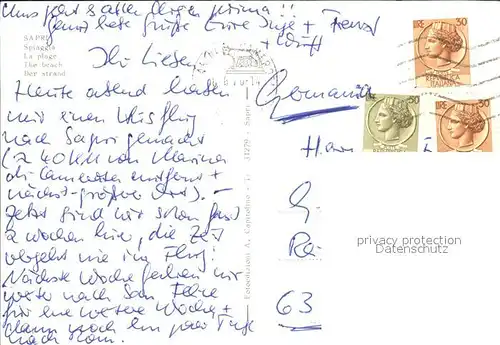 Uns geht's allen Dreien prima!!
ganz liebe Grüße Eure Inge + Franz
+
SAPRI
Spiaggia
La plage
The beach
Der strand
Ihr Lieben
Heute abend haben
wir einen Ausflug
nach Sapri gemacht
(2 40 KM von Marina
di Camerota entfernt +
nächst größerer Ort). -
Jetzt sind wir schon fast
2 Wochen hier, die Zeit
vergeht wie im Flug!
Nächste Woche fahren wir
weiter nach San Felice
für eine weitere Woche +
dann noch ein paar Tage
nach Rom.
Fotoedizioni A. Capitolina - 31279 - Sapri
LIRE 30
REPUBBLICA ITALIANA
50
LIRE 30
Germania
Ha
I
G.
Ra
63
privacy protection
Datenschutz